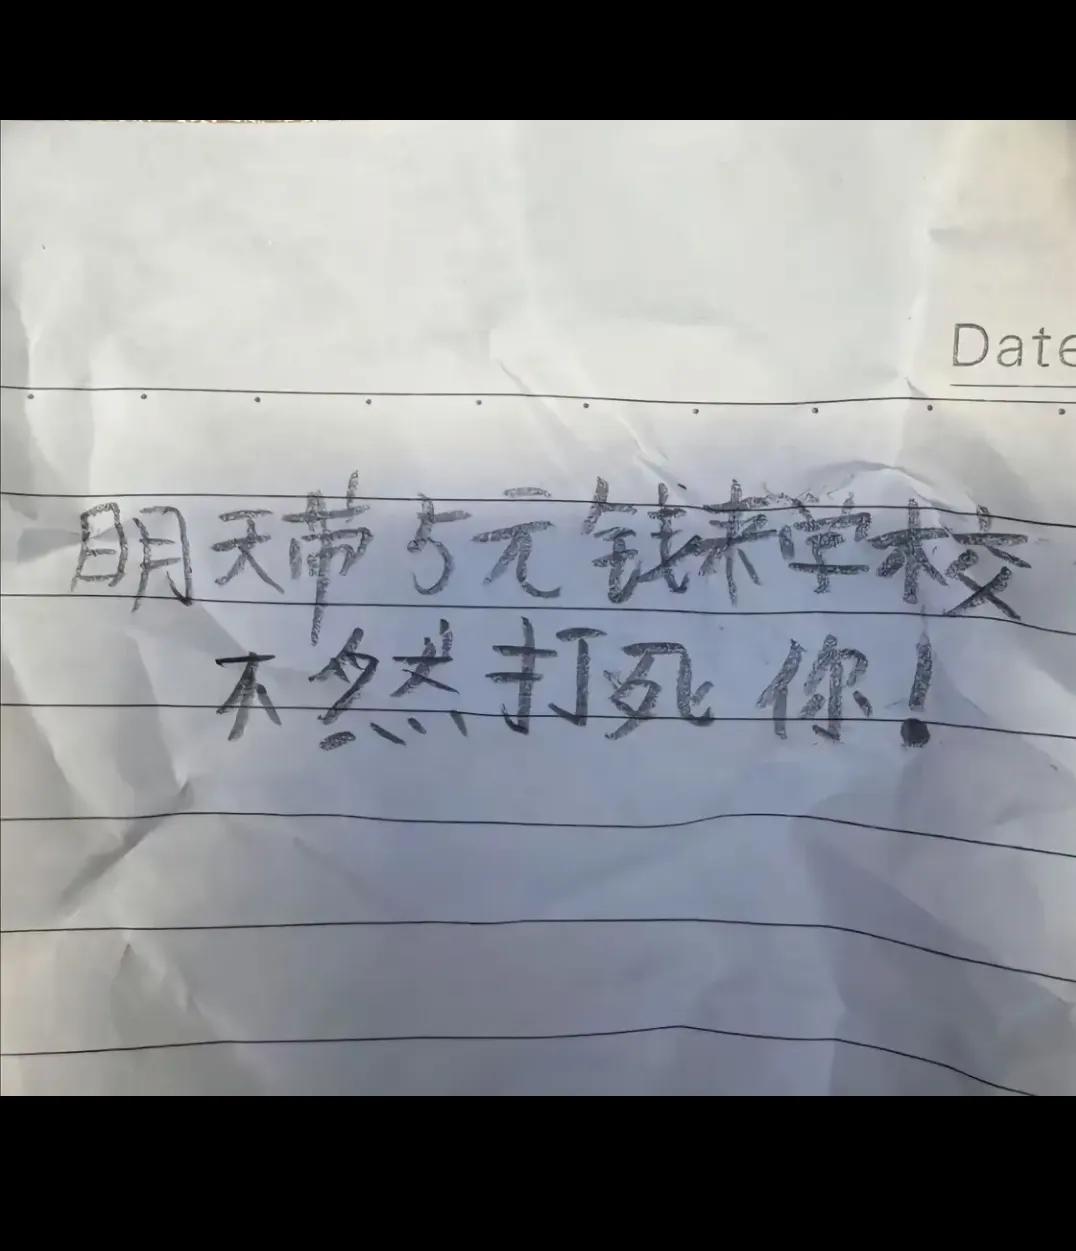 Date
明天带5元钱来学校
不然打死你！